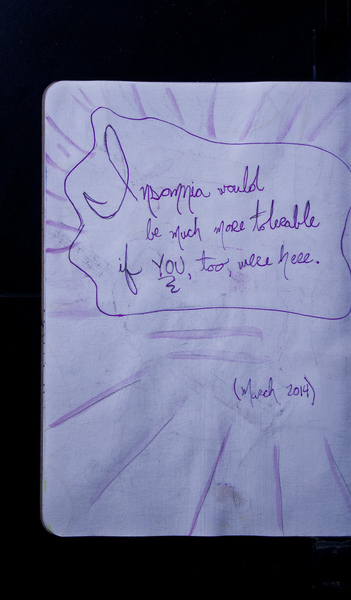 Insomnia would
be much more tolerable
if YOU, too, were here.
(March 2014)